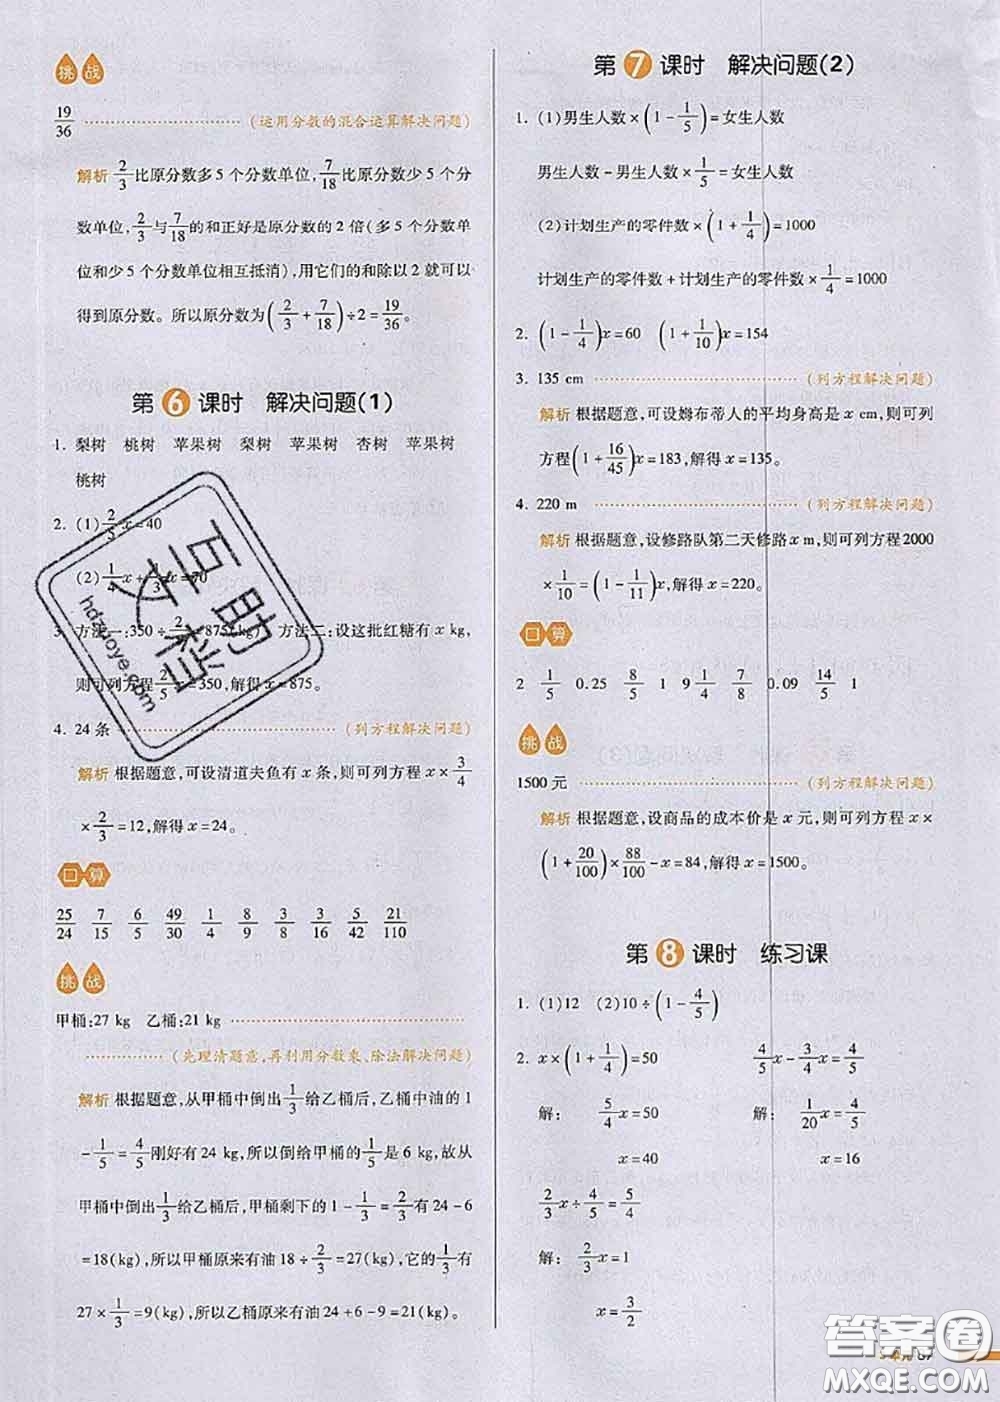 挑战
19/36 (运用分数的混合运算解决问题)
解析 2/3比原分数多5个分数单位,7/18比原分数少5个分
数单位,2/3与7/18的和正好是原分数的2倍(多5个分数单
位和少5个分数单位相互抵消),用它们的和除以2就可以
得到原分数。所以原分数为(2/3+7/18)÷2=19/36。
第6课时 解决问题(1)
1. 梨树 桃树 苹果树 梨树 苹果树 杏树 苹果树
桃树
2. (1)2/5x=40
(2)1/4x+1/3x=70
3. 方法一:350÷2/5=875(kg) 方法二:设这批红糖有x kg,
则可列方程2/5x=350,解得x=875。
4. 24条 (列方程解决问题)
解析 根据题意,可设清道夫鱼有x条,则可列方程x×3/4
×2/3=12,解得x=24。
口算
25/24 7/15 6/5 49/30 1/4 8/9 3/8 3/16 5/42 21/110
挑战
甲桶:27 kg 乙桶:21 kg
(先理清题意,再利用分数乘、除法解决问题)
解析 根据题意,从甲桶中倒出1/3给乙桶后,乙桶中油的1
-1/5=4/5刚好有24 kg,所以倒给甲桶的1/5是6 kg,故从
甲桶中倒出1/3给乙桶后,甲桶剩下的1-1/3=2/3有24-6
=18(kg),所以甲桶原来有油18÷2/3=27(kg),它的1/3有
27×1/3=9(kg),所以乙桶原来有油24+6-9=21(kg)。
第7课时 解决问题(2)
1. (1)男生人数×(1-1/5)=女生人数
男生人数-男生人数×1/5=女生人数
(2)计划生产的零件数×(1+1/4)=1000
计划生产的零件数+计划生产的零件数×1/4=1000
2. (1-1/4)x=60 (1+1/10)x=154
3. 135 cm (列方程解决问题)
解析 根据题意,可设姆布蒂人的平均身高是x cm,则可列
方程(1+16/45)x=183,解得x=135。
4. 220 m (列方程解决问题)
解析 根据题意,设修路队第二天修路x m,则可列方程2000
×1/10=(1-1/11)x,解得x=220。
口算
2 1/5 0.25 8/5 1 9 1/4 7/8 0.09 14/5 1
挑战
1500元 (列方程解决问题)
解析 根据题意,设商品的成本价是x元,则可列方程x×
(1+20/100)×88/100-x=84,解得x=1500。
第8课时 练习课
1. (1)12 (2)10÷(1-4/5)
2. x×(1+1/4)=50 4/5x-3/4x=4/5
解: 5/4x=50 解: 1/20x=4/5
x=40 x=16
2/3x÷4/5=5/4
解: 2/3x=1
x=3/2
互助文档
hdzuoye.com
答案圈
MXQE.COM